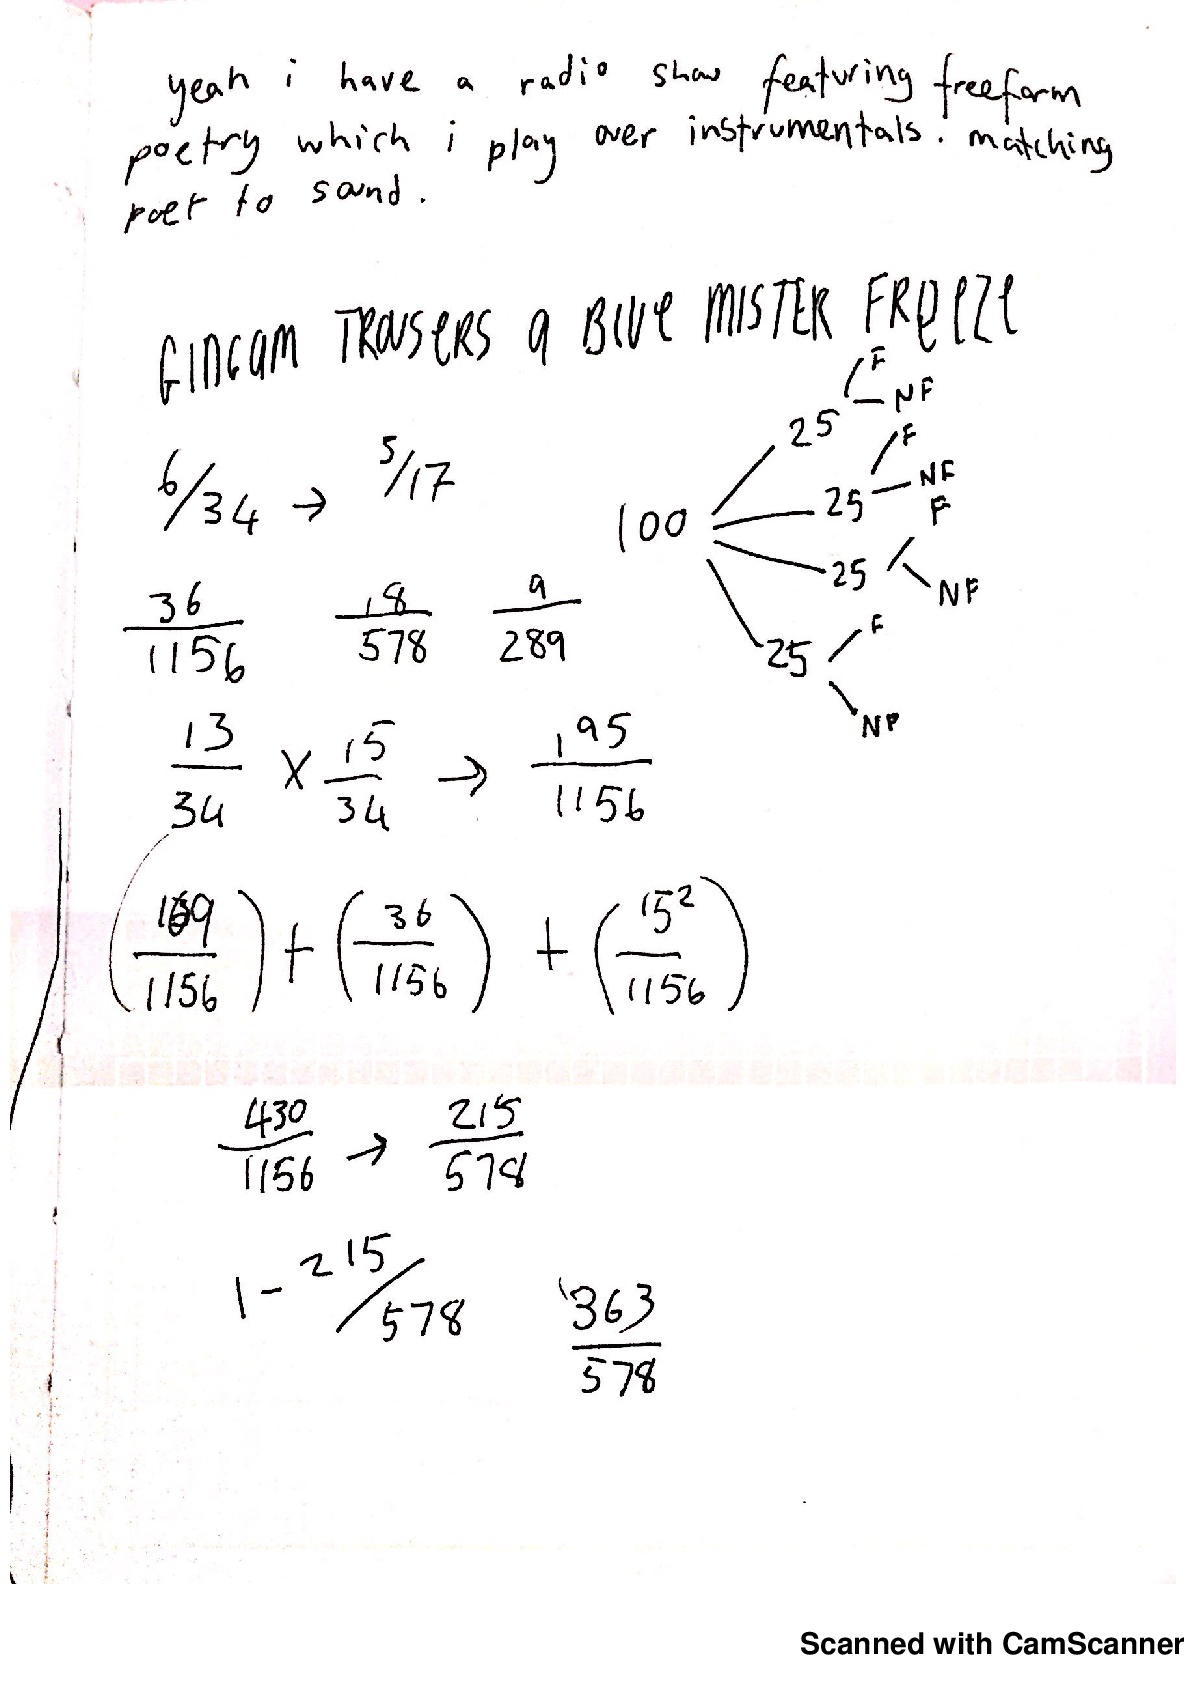 yeah i have a radio show featuring freeform
poetry which i play over instrumentals. matching
poet to sound.
GINGAM TROUSERS a BlUe MISTER FReeZe
6/34 → 5/17
36/1156 18/578 9/289
13/34 X 15/34 → 195/1156
(169/1156) + (36/1156) + (15²/1156)
430/1156 → 215/578
1 - 215/578 363/578
100
25 F NF
25 F NF
25 F NF
25 F NF
Scanned with CamScanner